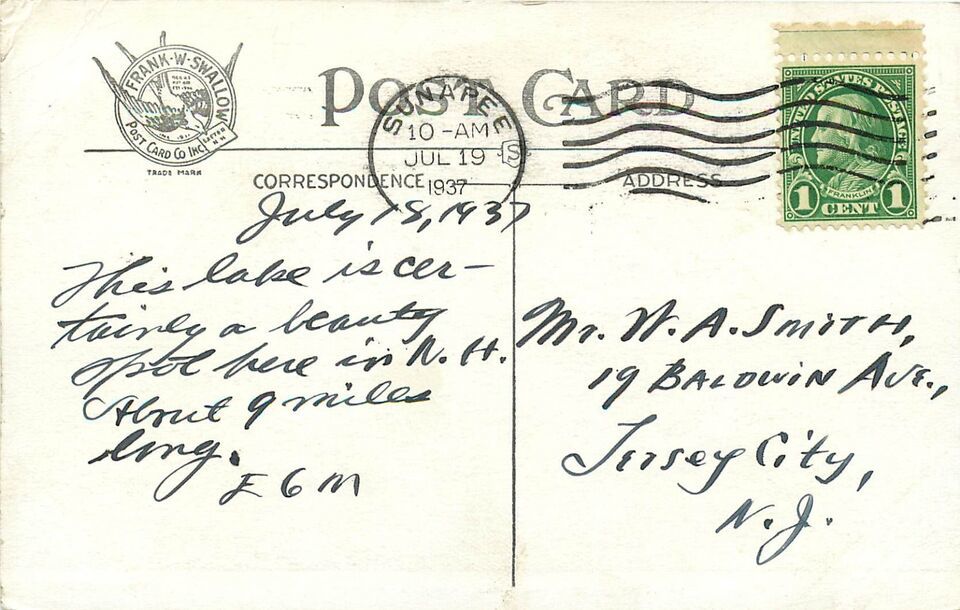 FRANK·W·SWALLOW
POST CARD CO INC
TRADE MARK
POST CARD
SUNAPEE
10-AM
JUL 19
1937
N.H.
UNITED STATES POSTAGE
FRANKLIN
1 CENT 1
CORRESPONDENCE
ADDRESS
July 18, 1937
This lake is cer-
tainly a beauty
spot here in N. H.
About 9 miles
long.
E G M
Mr. W. A. SMITH,
19 BALDWIN AVE.,
Jersey City,
N. J.